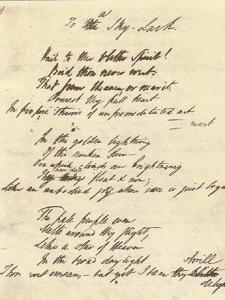 To a Sky-Lark
Hail to thee blithe Spirit!
Bird thou never wert
That from Heaven or near it
Pourest thy full heart
In profuse strains of unpremeditated art
In the golden lightning
Of the sunken Sun
O'er which clouds are brightning
Thou dost float & run,
Like an unbodied joy whose race is just begun
The pale purple even
Melts around thy flight,
Like a star of Heaven
In the broad daylight
Thou art unseen— but yet I hear thy shrill